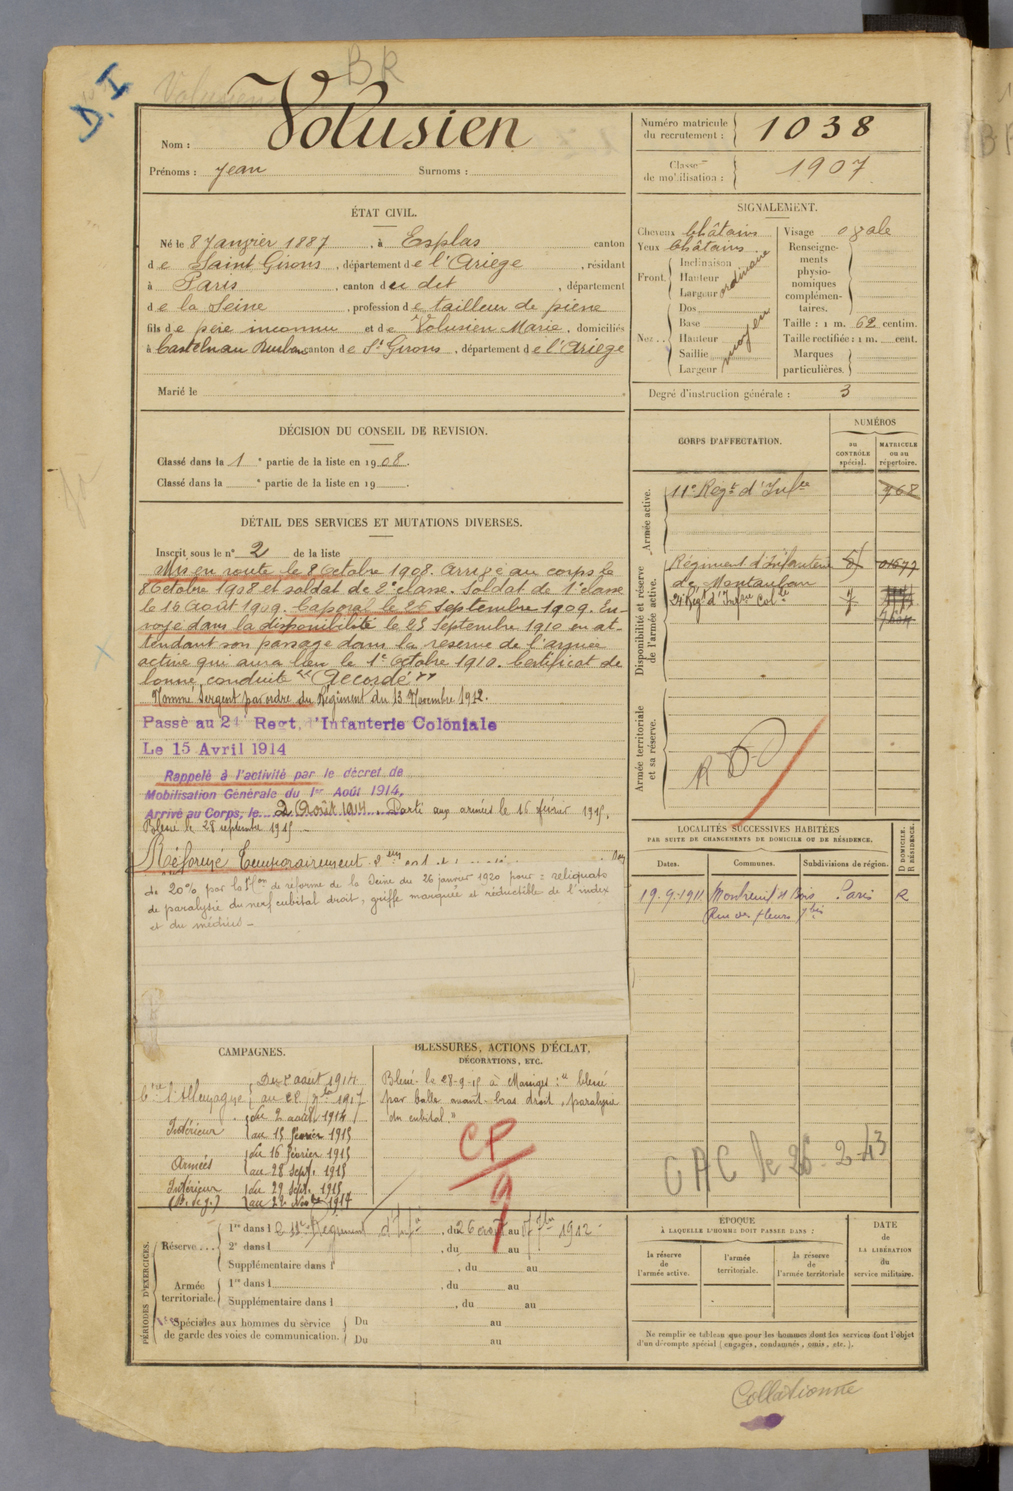 BR
D.I
Volusien
Nom : Volusien
Prénoms : Jean Surnoms :
Numéro matricule du recrutement : 1038
Classe de mobilisation : 1907
ÉTAT CIVIL.
Né le 8 Janvier 1887, à Esplas canton
de Saint Girons, département de l'Ariège, résidant
à Paris, canton du dit, département
de la Seine, profession de tailleur de pierre
fils de père inconnu et de Volusien Marie, domiciliés
à Castelnau Durban canton de St Girons, département de l'Ariège
Marié le
SIGNALEMENT.
Cheveux Châtains
Yeux Châtains
Front. Inclinaison
Hauteur
Largeur
ordinaire
Nez.. Dos
Base
Hauteur
Saillie
Largeur
moyen
Visage ovale
Renseigne-
ments
physio-
nomiques
complémen-
taires.
Taille : 1 m. 62 centim.
Taille rectifiée : 1 m. cent.
Marques
particulières.
Degré d'instruction générale : 3
DÉCISION DU CONSEIL DE REVISION.
Classé dans la 1e partie de la liste en 1908.
Classé dans la e partie de la liste en 19 .
DÉTAIL DES SERVICES ET MUTATIONS DIVERSES.
Inscrit sous le n° 2 de la liste
Mis en route le 8 Octobre 1908. Arrivé au corps le
8 Octobre 1908 et soldat de 2e classe. Soldat de 1e classe
le 16 Août 1909. Caporal le 25 Septembre 1909. En-
voyé dans la disponibilité le 25 Septembre 1910 en at-
tendant son passage dans la réserve de l'armée
active qui aura lieu le 1e Octobre 1910. Certificat de
bonne conduite "Accordé"
Nommé Sergent par ordre du Régiment du 13 Novembre 1912.
Passé au 24 Regt. d'Infanterie Coloniale
Le 15 Avril 1914
Rappelé à l'activité par le décret de
Mobilisation Générale du 1er Août 1914,
Arrivé au Corps, le 2 Août 1914. Parti aux armées le 16 février 1915.
Blessé le 28 septembre 1915
Réformé Temporairement
de 20% par la Son de réforme de la Seine du 26 janvier 1920 pour : reliquats
de paralysie du nerf cubital droit, griffe marquée et réductible de l'index
et du médius
CORPS D'AFFECTATION.
NUMÉROS
au
CONTRÔLE
spécial.
MATRICULE
ou au
répertoire.
Armée active.
11e Régt d'Infie
968
Disponibilité et réserve
de l'armée active.
Régiment d'Infanterie
de Montauban
01577
24 Régt d'Infrie Colle
Armée territoriale
et sa réserve.
R
LOCALITÉS SUCCESSIVES HABITÉES
PAR SUITE DE CHANGEMENTS DE DOMICILE OU DE RÉSIDENCE.
Dates.
Communes.
Subdivisions de région.
D DOMICILE.
R RÉSIDENCE.
19.9.1911 Montreuil s/ Bois Paris R
Rue des fleurs 7bis
CAMPAGNES.
Cre l'Allemagne
Du 2 août 1914
au 22 1917
Intérieur
du 2 août 1914
au 15 février 1915
Armées
du 16 février 1915
au 28 Sept. 1915
Intérieur
(B. de g.)
du 29 Sept. 1915
BLESSURES, ACTIONS D'ÉCLAT,
DÉCORATIONS, ETC.
Blessé le 28-9-15 à Massiges : "blessé
par balle avant-bras droit, paralysie
du cubital."
CP
CAC le 26-2-43
PÉRIODES D'EXERCICES.
Réserve...
1re dans l e 11e Régiment d'Infie, du 26 août au 17 7bre 1912
2e dans l , du au
Supplémentaire dans l , du au
Armée
territoriale.
1re dans l , du au
Supplémentaire dans l , du au
Spéciales aux hommes du service
de garde des voies de communication.
Du au
Du au
ÉPOQUE
À LAQUELLE L'HOMME DOIT PASSER DANS :
la réserve
de
l'armée active.
l'armée
territoriale.
la réserve
de
l'armée territoriale
DATE
de
LA LIBÉRATION
du
service militaire.
Ne remplir ce tableau que pour les hommes dont les services font l'objet
d'un décompte spécial (engagés, condamnés, omis, etc.).
Collationné